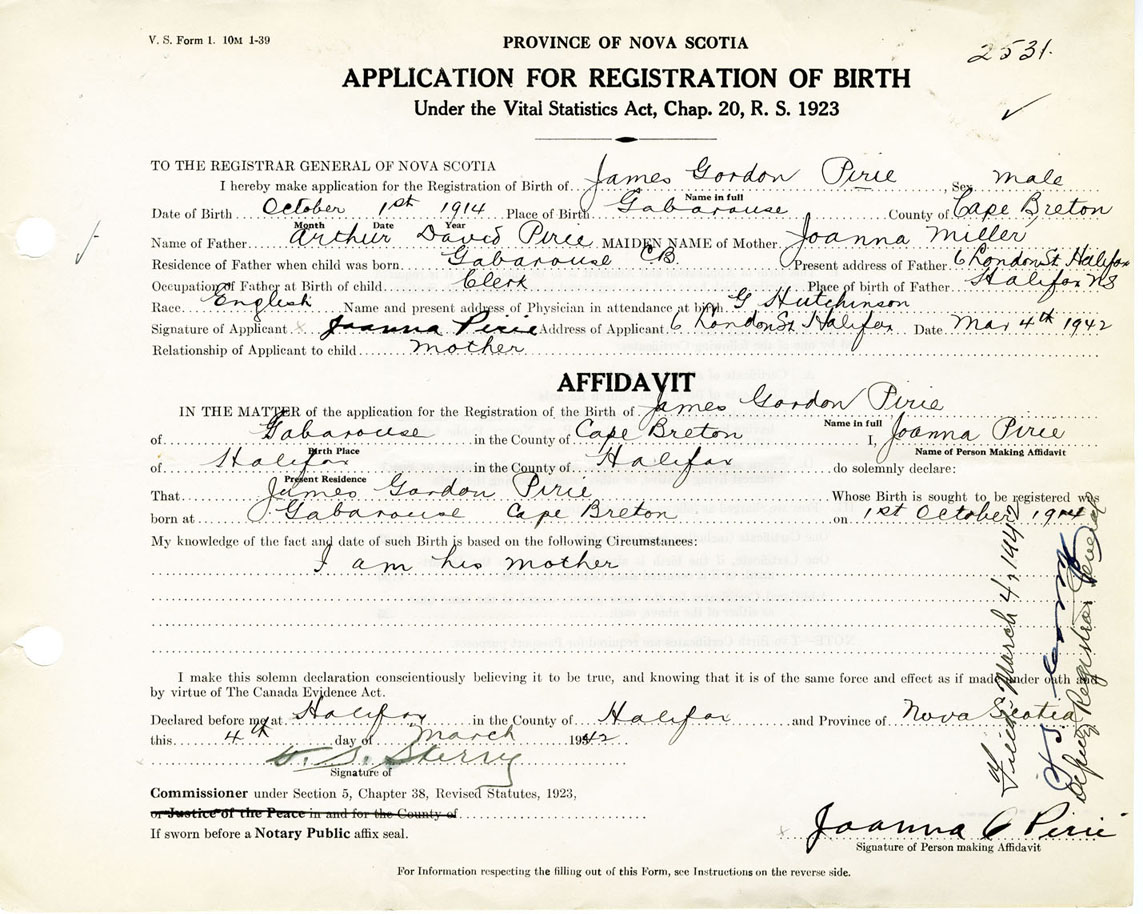 V. S. Form 1. 10M 1-39
PROVINCE OF NOVA SCOTIA
2531.
APPLICATION FOR REGISTRATION OF BIRTH
Under the Vital Statistics Act, Chap. 20, R. S. 1923
TO THE REGISTRAR GENERAL OF NOVA SCOTIA
I hereby make application for the Registration of Birth of James Gordon Pirie, Sex male
Name in full
Date of Birth October 1st 1914 Place of Birth Gabarouse County of Cape Breton
Month Date Year
Name of Father Arthur David Pirie MAIDEN NAME of Mother Joanna Miller
Residence of Father when child was born Gabarouse C.B. Present address of Father 6 London St. Halifax
Occupation of Father at Birth of child Clerk Place of birth of Father Halifax NS
Race English Name and present address of Physician in attendance at birth G Hutchinson
Signature of Applicant x Joanna Pirie Address of Applicant 6 London St Halifax Date Mar 4th 1942
Relationship of Applicant to child mother
AFFIDAVIT
IN THE MATTER of the application for the Registration of the Birth of James Gordon Pirie
Name in full
of Gabarouse in the County of Cape Breton I, Joanna Pirie
Birth Place Name of Person Making Affidavit
of Halifax in the County of Halifax do solemnly declare:
Present Residence
That James Gordon Pirie Whose Birth is sought to be registered was
born at Gabarouse Cape Breton on 1st October 1914
My knowledge of the fact and date of such Birth is based on the following Circumstances:
I am his mother
I make this solemn declaration conscientiously believing it to be true, and knowing that it is of the same force and effect as if made under oath and
by virtue of The Canada Evidence Act.
Declared before me at Halifax in the County of Halifax and Province of Nova Scotia
this 4th day of March 1942
Signature of
Commissioner under Section 5, Chapter 38, Revised Statutes, 1923,
or Justice of the Peace in and for the County of
If sworn before a Notary Public affix seal.
x Joanna C Pirie
Signature of Person making Affidavit
For Information respecting the filling out of this Form, see Instructions on the reverse side.
Filed March 4, 1942
Deputy Registrar General